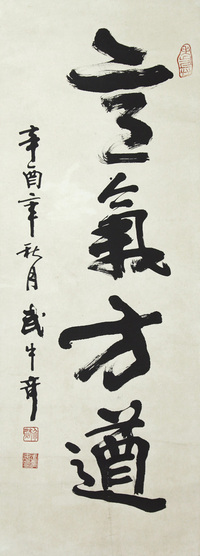 意氣方遒
辛酉年秋月武中奇